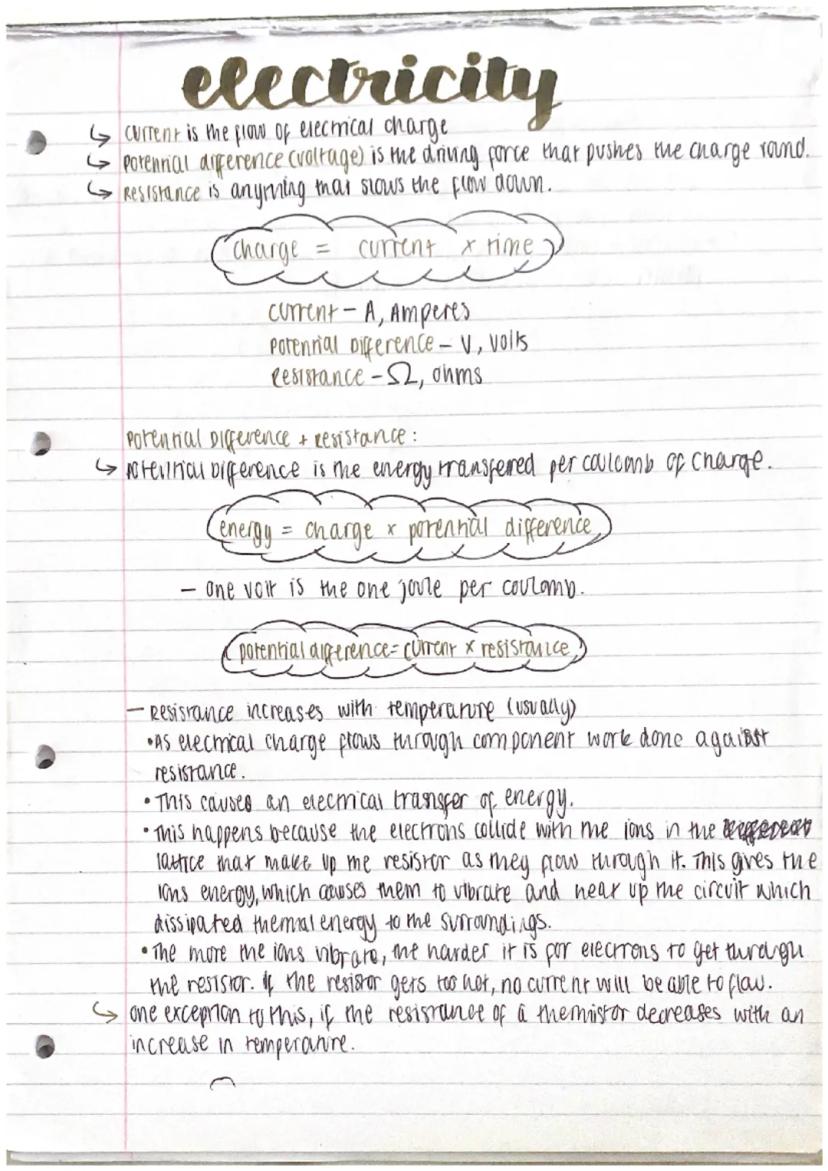 electricity
↳ current is the flow of electrical charge
↳ potential difference (voltage) is the driving force that pushes the charge round.
↳ Resistance is anything that slows the flow down.
charge = current × time
current – A, Amperes
Potential Difference – V, Volts
Resistance – Ω, ohms
Potential Difference + Resistance:
↳ Potential Difference is the energy transferred per coulomb of charge.
energy = charge × potential difference
– One volt is the one joule per coulomb.
potential difference = current × resistance
– Resistance increases with temperature (usually)
•As electrical charge flows through component work done against
resistance.
• This causes an electrical transfer of energy.
• This happens because the electrons collide with the ions in the
lattice that make up the resistor as they flow through it. This gives the
ions energy, which causes them to vibrate and heat up the circuit which
dissipated thermal energy to the surroundings.
• The more the ions vibrate, the harder it is for electrons to get through
the resistor. If the resistor gets too hot, no current will be able to flow.
↳ one exception to this, if the resistance of a themistor decreases with an
increase in temperature.